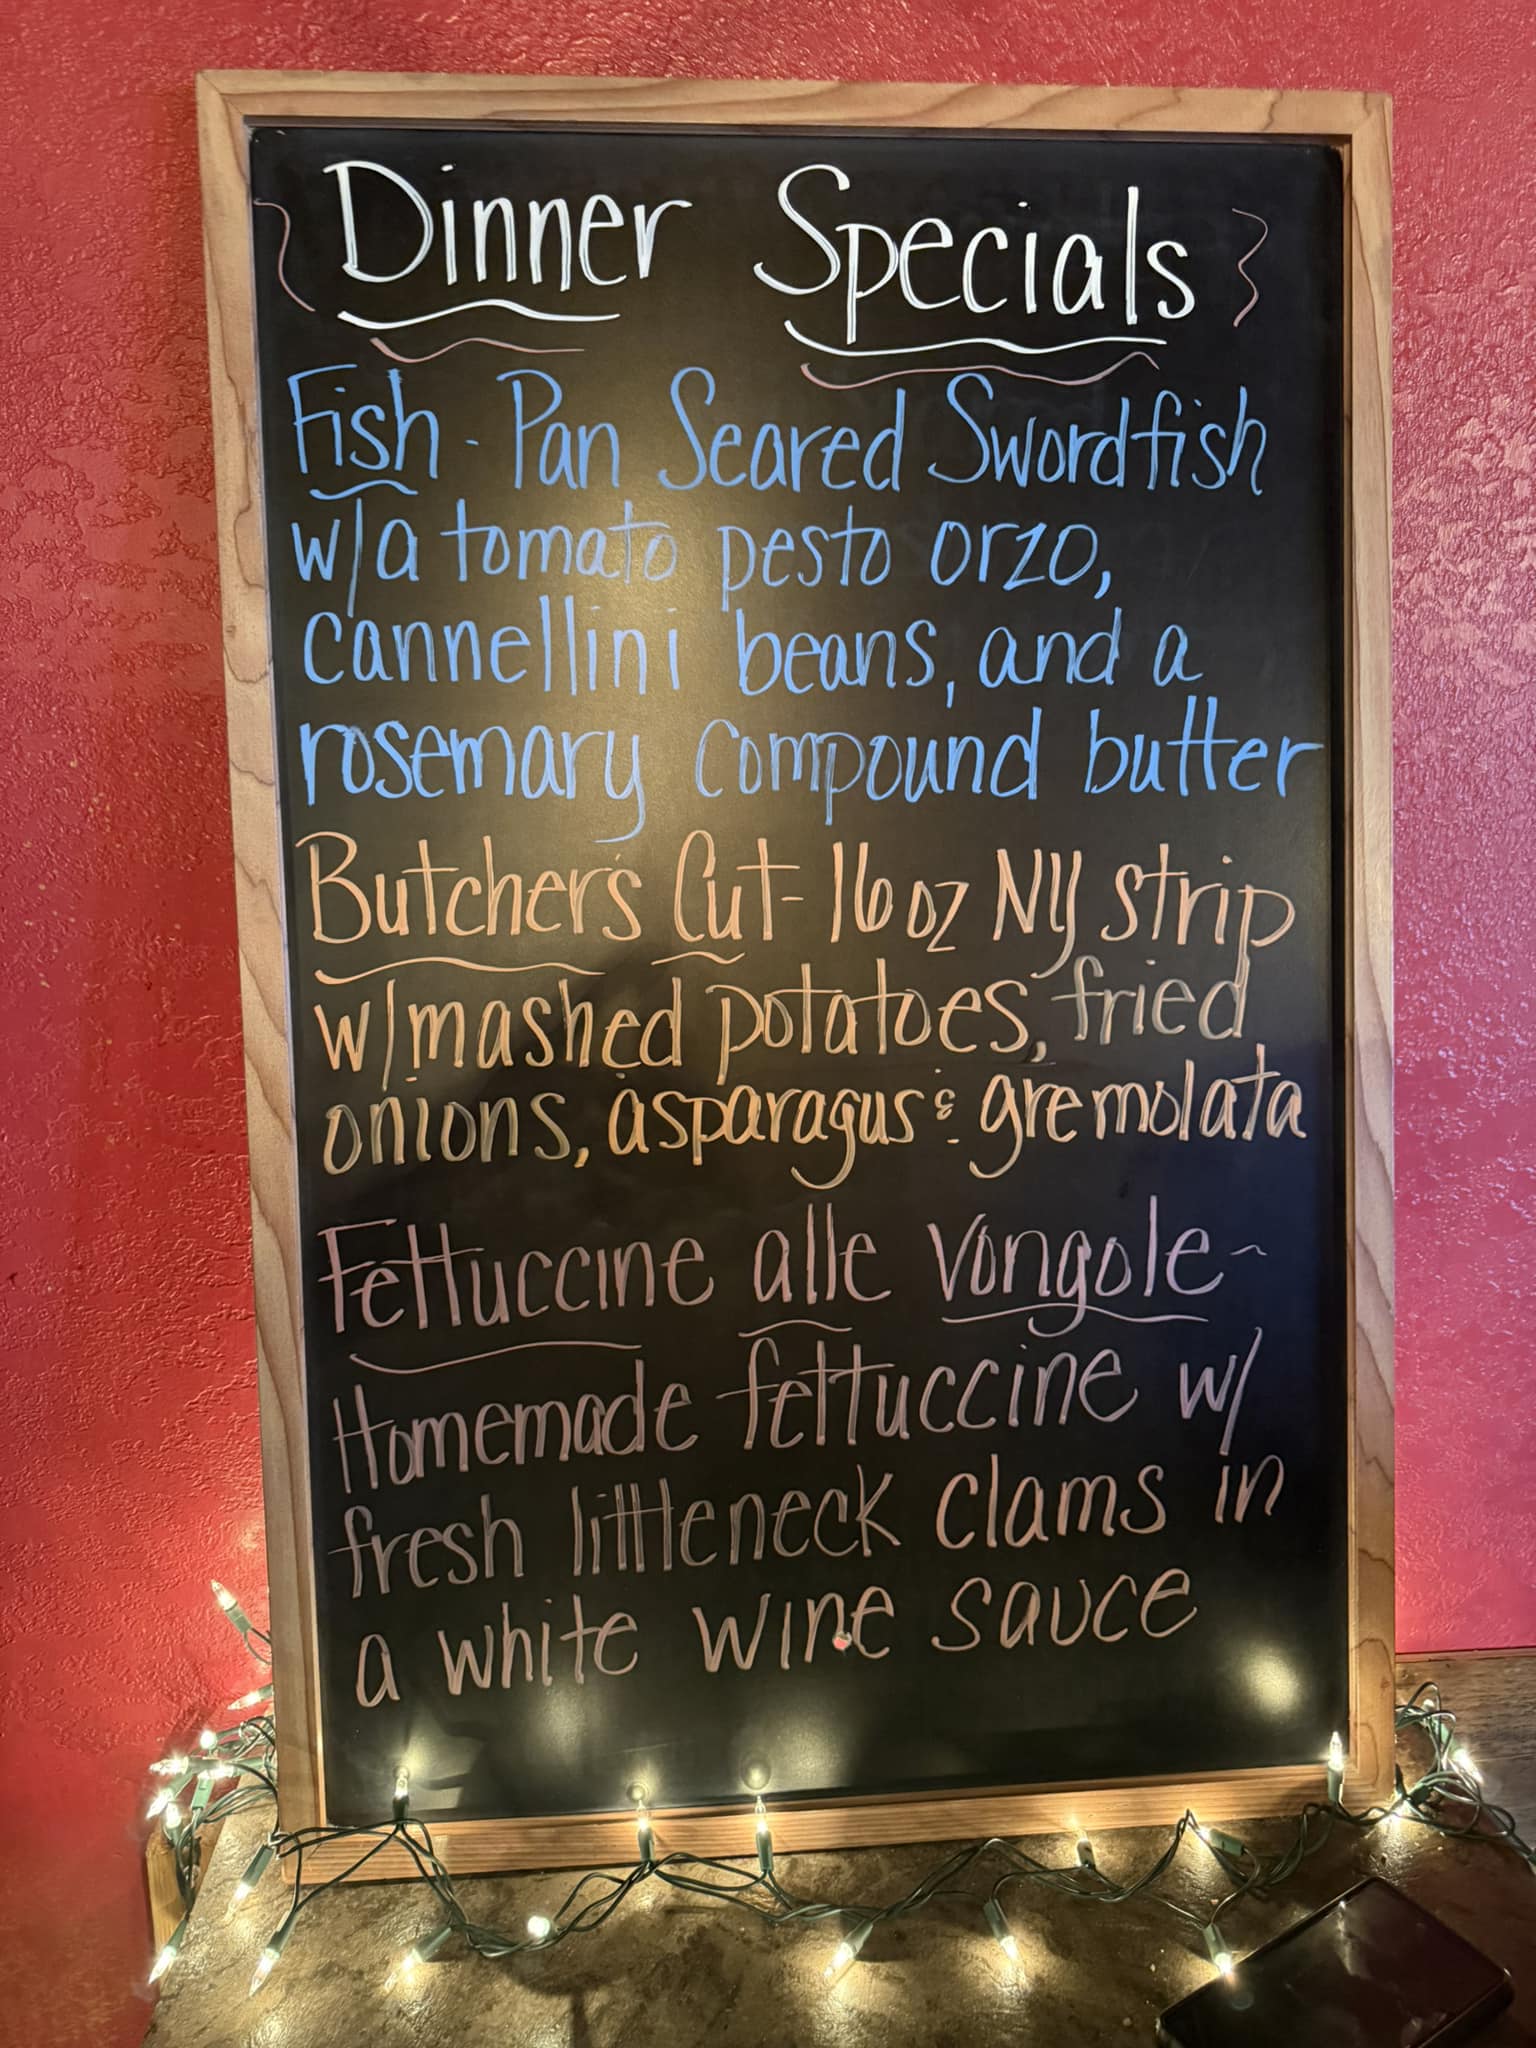 Dinner Specials
Fish - Pan Seared Swordfish
w/a tomato pesto orzo,
cannellini beans, and a
rosemary compound butter
Butcher's Cut - 16 oz NY strip
w/mashed potatoes, fried
onions, asparagus & gremolata
Fettuccine alle Vongole ~
Homemade fettuccine w/
fresh littleneck clams in
a white wine sauce